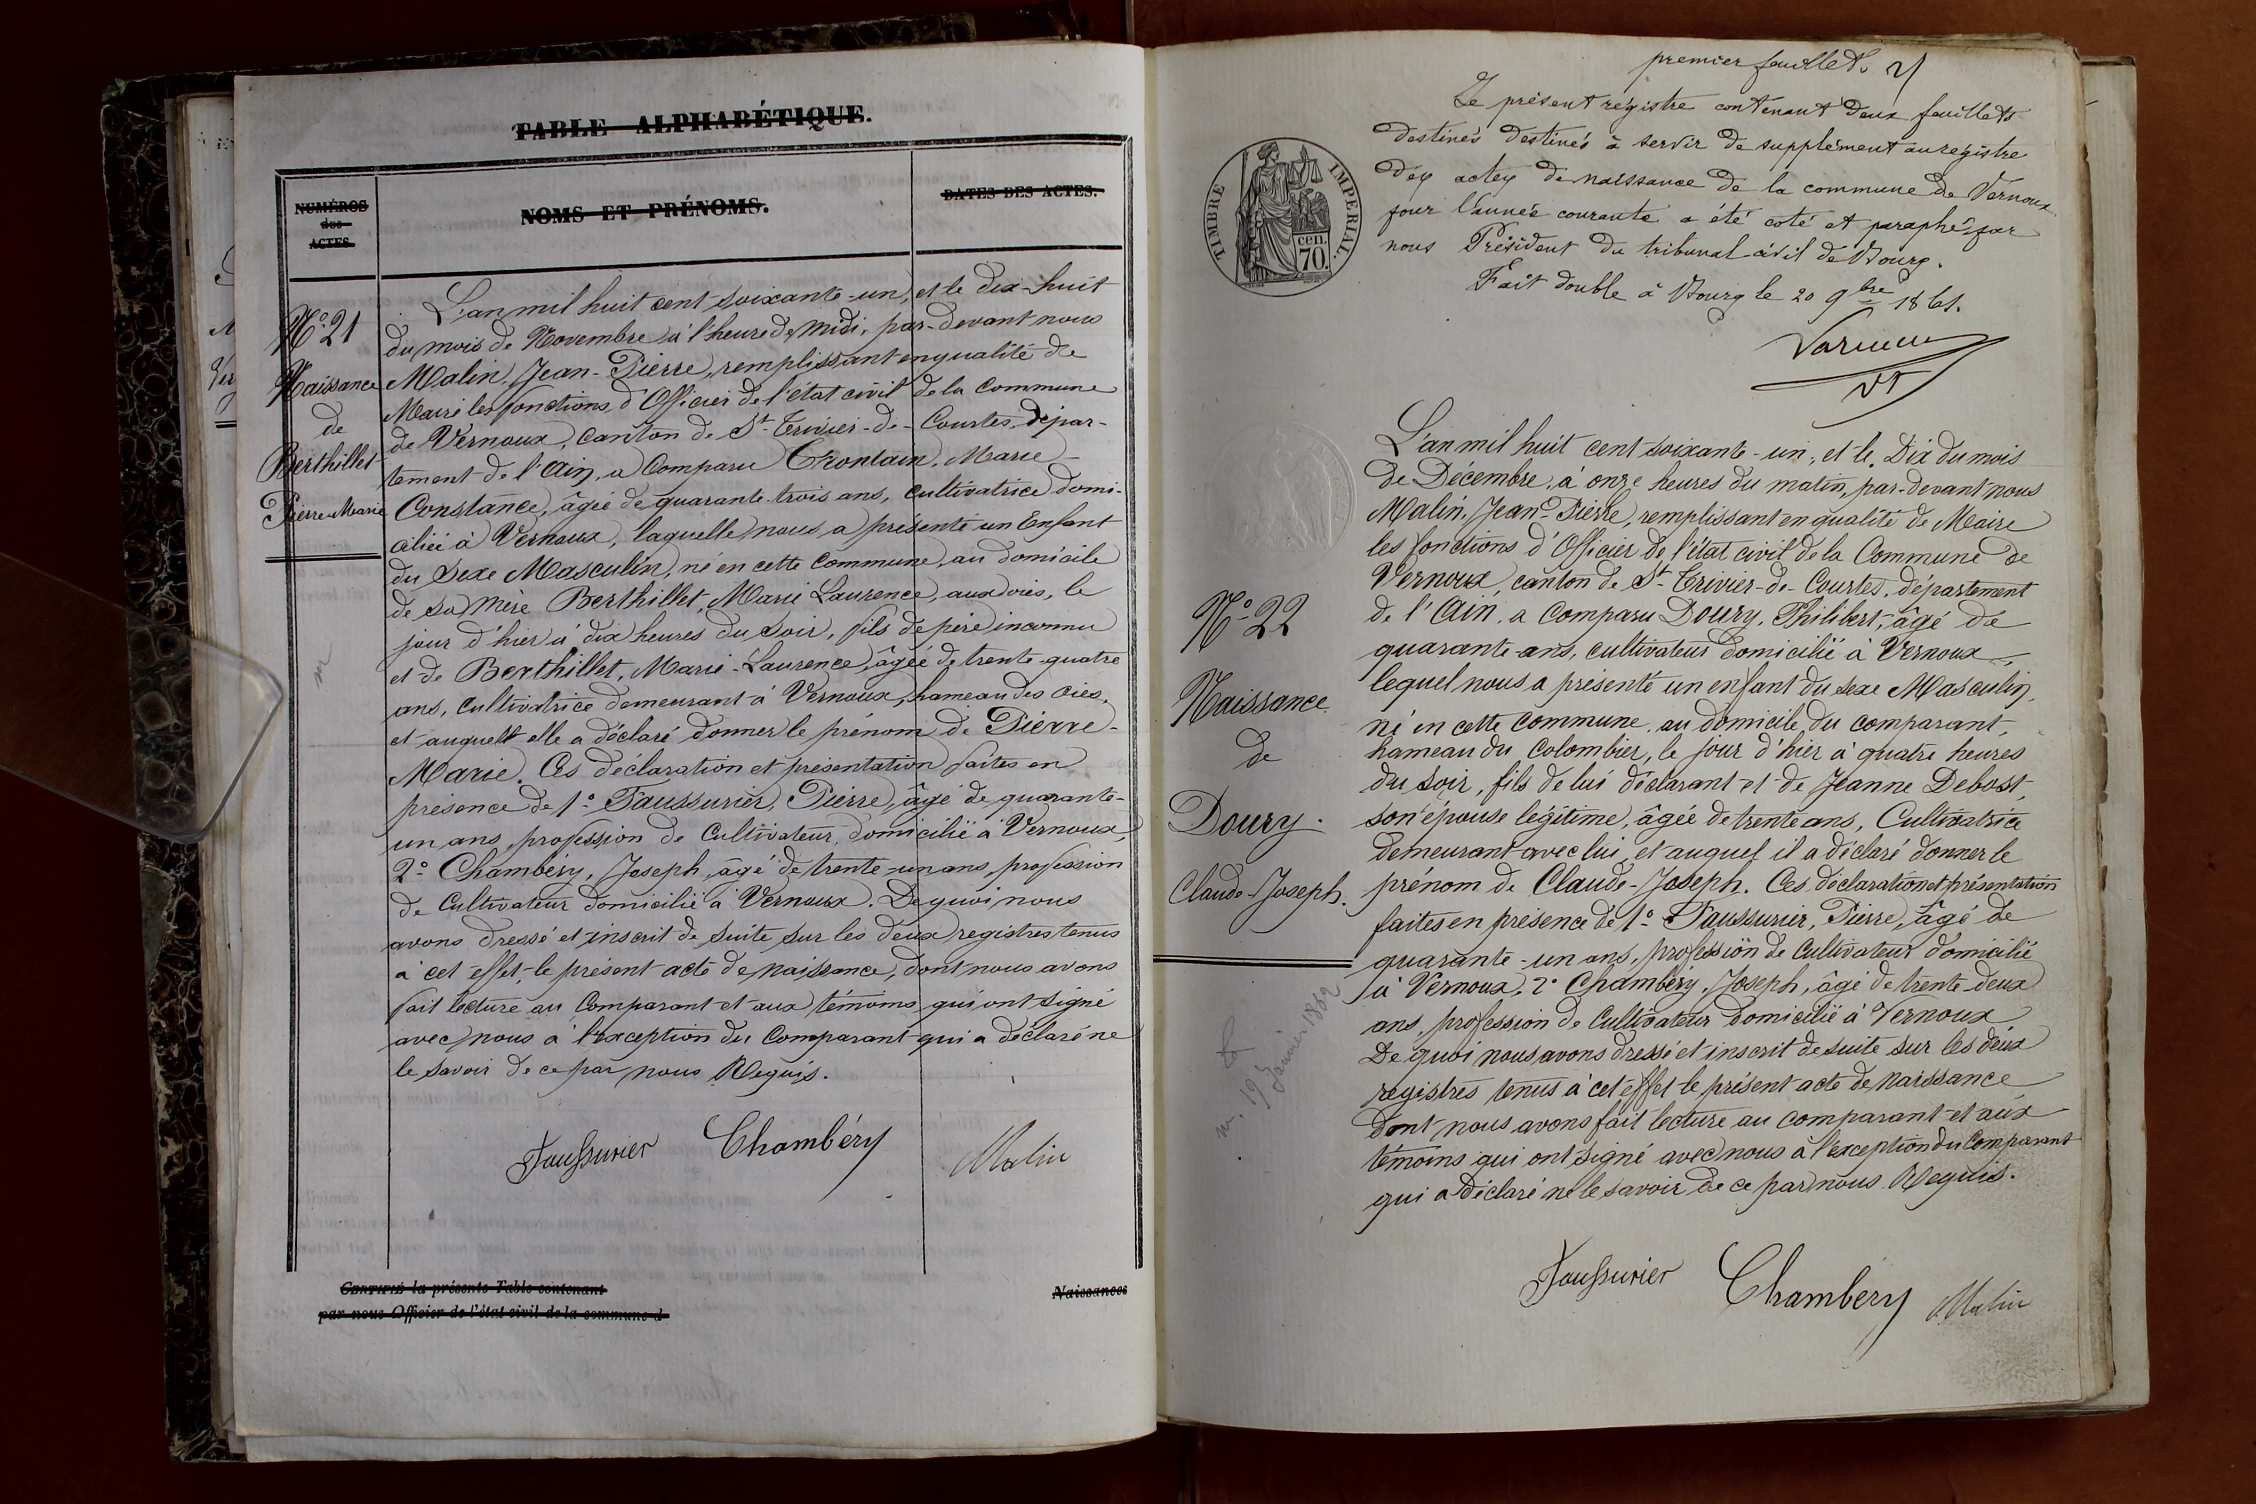 TABLE ALPHABÉTIQUE.
NUMÉROS
des
ACTES.
NOMS ET PRÉNOMS.
DATES DES ACTES.
N.º 21
Naissance
de
Berthillet
Pierre-Marie
L'an mil huit cent soixante-un, et le dix-huit
du mois de Novembre à l'heure de midi, par-devant nous
Malin, Jean-Pierre, remplissant en qualité de
Maire les fonctions d'Officier de l'état civil de la Commune
de Vernoux, canton de St-Trivier-de-Courtes, dépar-
tement de l'Ain, a Comparu Trontain, Marie-
Constance, âgée de quarante-trois ans, cultivatrice domi-
ciliée à Vernoux, laquelle nous a présenté un Enfant
du Sexe Masculin, né en cette Commune, au domicile
de sa mère Berthillet, Marie Laurence, aux oies, le
jour d'hier à dix heures du soir, fils de père inconnu
et de Berthillet, Marie-Laurence, âgée de trente-quatre
ans, Cultivatrice demeurant à Vernoux, hameau des oies,
et auquelt elle a déclaré donner le prénom de Pierre-
Marie. Ces déclaration et présentation faites en
présence de 1º Faussurier, Pierre, âgé de quarante-
un ans, profession de Cultivateur, domicilié à Vernoux,
2º Chambéry, Joseph, âgé de trente-un ans, profession
de Cultivateur domicilié à Vernoux. De quoi nous
avons dressé et inscrit de suite sur les deux registres tenus
à cet effet, le présent acte de naissance, dont nous avons
fait lecture au Comparant et aux témoins qui ont signé
avec nous à l'exception du Comparant qui a déclaré ne
le savoir de ce par nous Requis.
Faussurier Chambéry Malin
CERTIFIÉ la présente Table contenant
Naissances
par nous Officier de l'état civil de la commune d
premier feuillet.
Le présent régistre contenant deux feuillets
destinés destinés à servir de supplément au régistre
des actes de naissance de la commune de Vernoux
pour l'année courante a été coté et paraphé par
nous Président du tribunal civil de Bourg.
Fait double à Bourg le 20 9bre 1861.
TIMBRE IMPÉRIAL.
cen.
70.
N.º 22
Naissance
de
Doury.
Claude-Joseph.
L'an mil huit cent soixante-un, et le Dix du mois
De Décembre, à onze heures du matin, par-devant nous
Malin, Jean-Pierre, remplissant en qualité de Maire
les fonctions d'Officier de l'état civil de la Commune de
Vernoux, canton de St-Trivier-de-Courtes, département
de l'Ain, a Comparu Doury, Philibert, âgé de
quarante-ans, cultivateur domicilié à Vernoux,
lequel nous a présenté un enfant du sexe Masculin,
né en cette Commune, au domicile du comparant,
hameau du Colombier, le jour d'hier à quatre heures
du soir, fils de lui déclarant et de Jeanne Debost,
son épouse légitime, âgée de trente ans, Cultivatrice
demeurant avec lui, et auquel il a déclaré donner le
prénom de Claude-Joseph. Ces déclaration et présentation
faites en présence de 1º Faussurier, Pierre, âgé de
quarante-un ans, profession de Cultivateur domicilié
à Vernoux, 2º Chambéry, Joseph, âgé de trente-deux
ans, profession de Cultivateur Domicilié à Vernoux
De quoi nous avons dressé et inscrit de suite sur les deux
registres tenus à cet effet le présent acte de naissance
dont nous avons fait lecture au comparant et aux
témoins qui ont signé avec nous à l'exception du Comparant
qui a déclaré ne le savoir de ce par nous Requis.
Faussurier Chambéry Malin